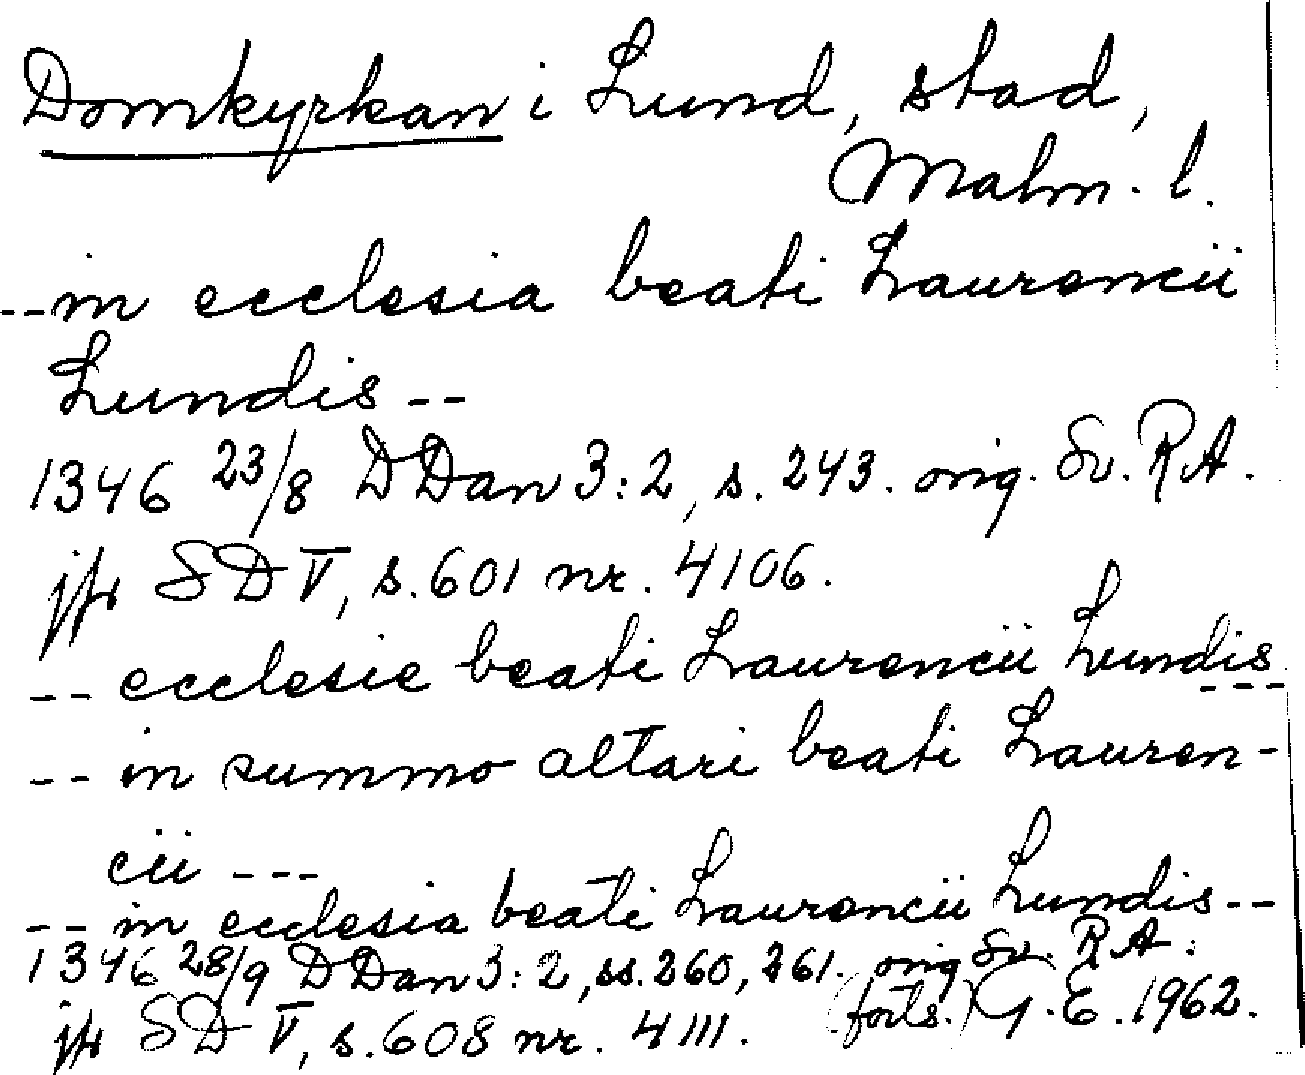 Domkyrkan i Lund, stad,
Malm. l.
-- in ecclesia beati Laurencii
Lundis --
1346 23/8 DDan 3:2, s. 243. orig. Sv. RA.
jfr SD V, s. 601 nr. 4106.
-- ecclesie beati Laurencii Lundis ---
-- in summo altari beati Lauren-
cii ---
-- in ecclesia beati Laurencii Lundis --
1346 28/9 DDan 3:2, ss. 260, 261. orig Sv. RA.
jfr SD V, s. 608 nr. 4111. (forts.) G.E. 1962.